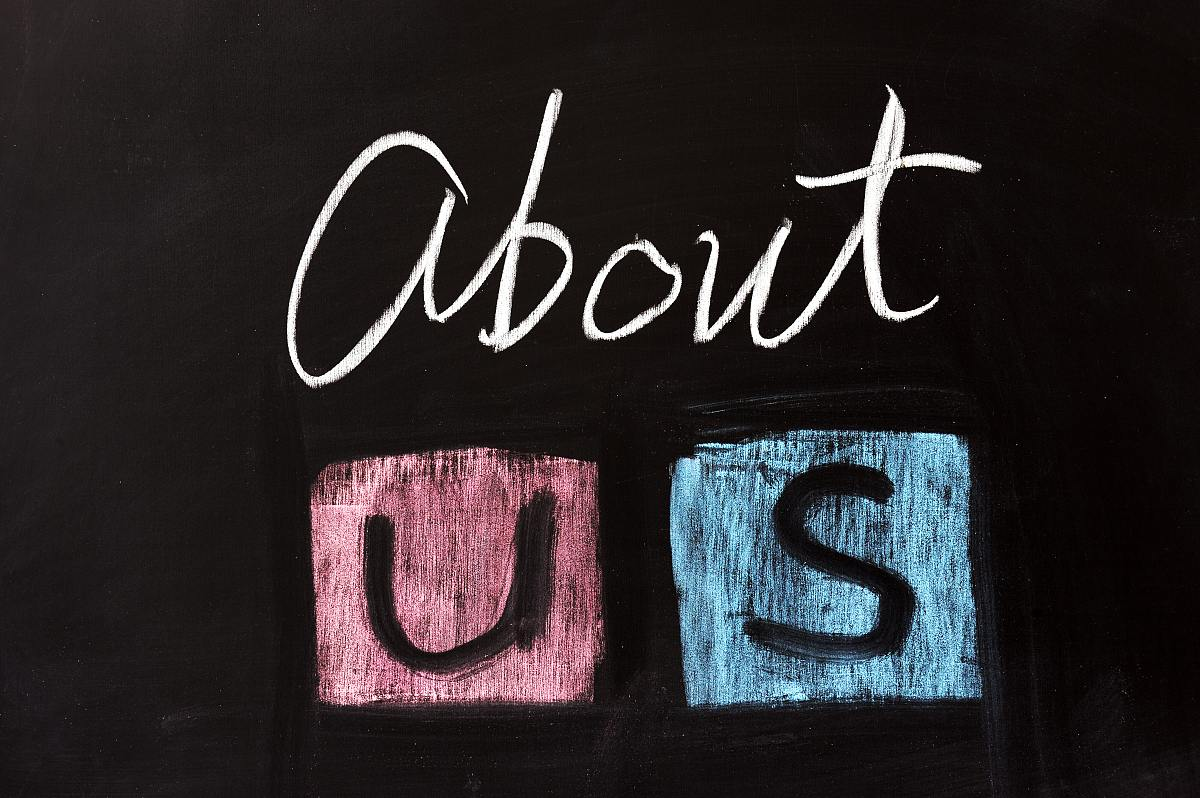 About
US